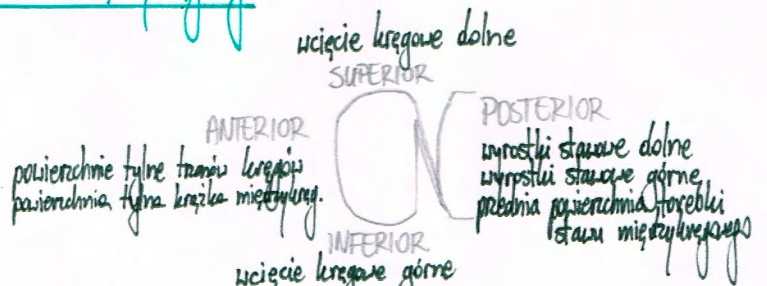 wcięcie kręgowe dolne
SUPERIOR
ANTERIOR
powierzchnie tylne trzonów kręgów
powierzchnia tylna krążka międzykręg.
POSTERIOR
wyrostki stawowe dolne
wyrostki stawowe górne
przednia powierzchnia torebki
stawu międzykręgowego
INFERIOR
wcięcie kręgowe górne